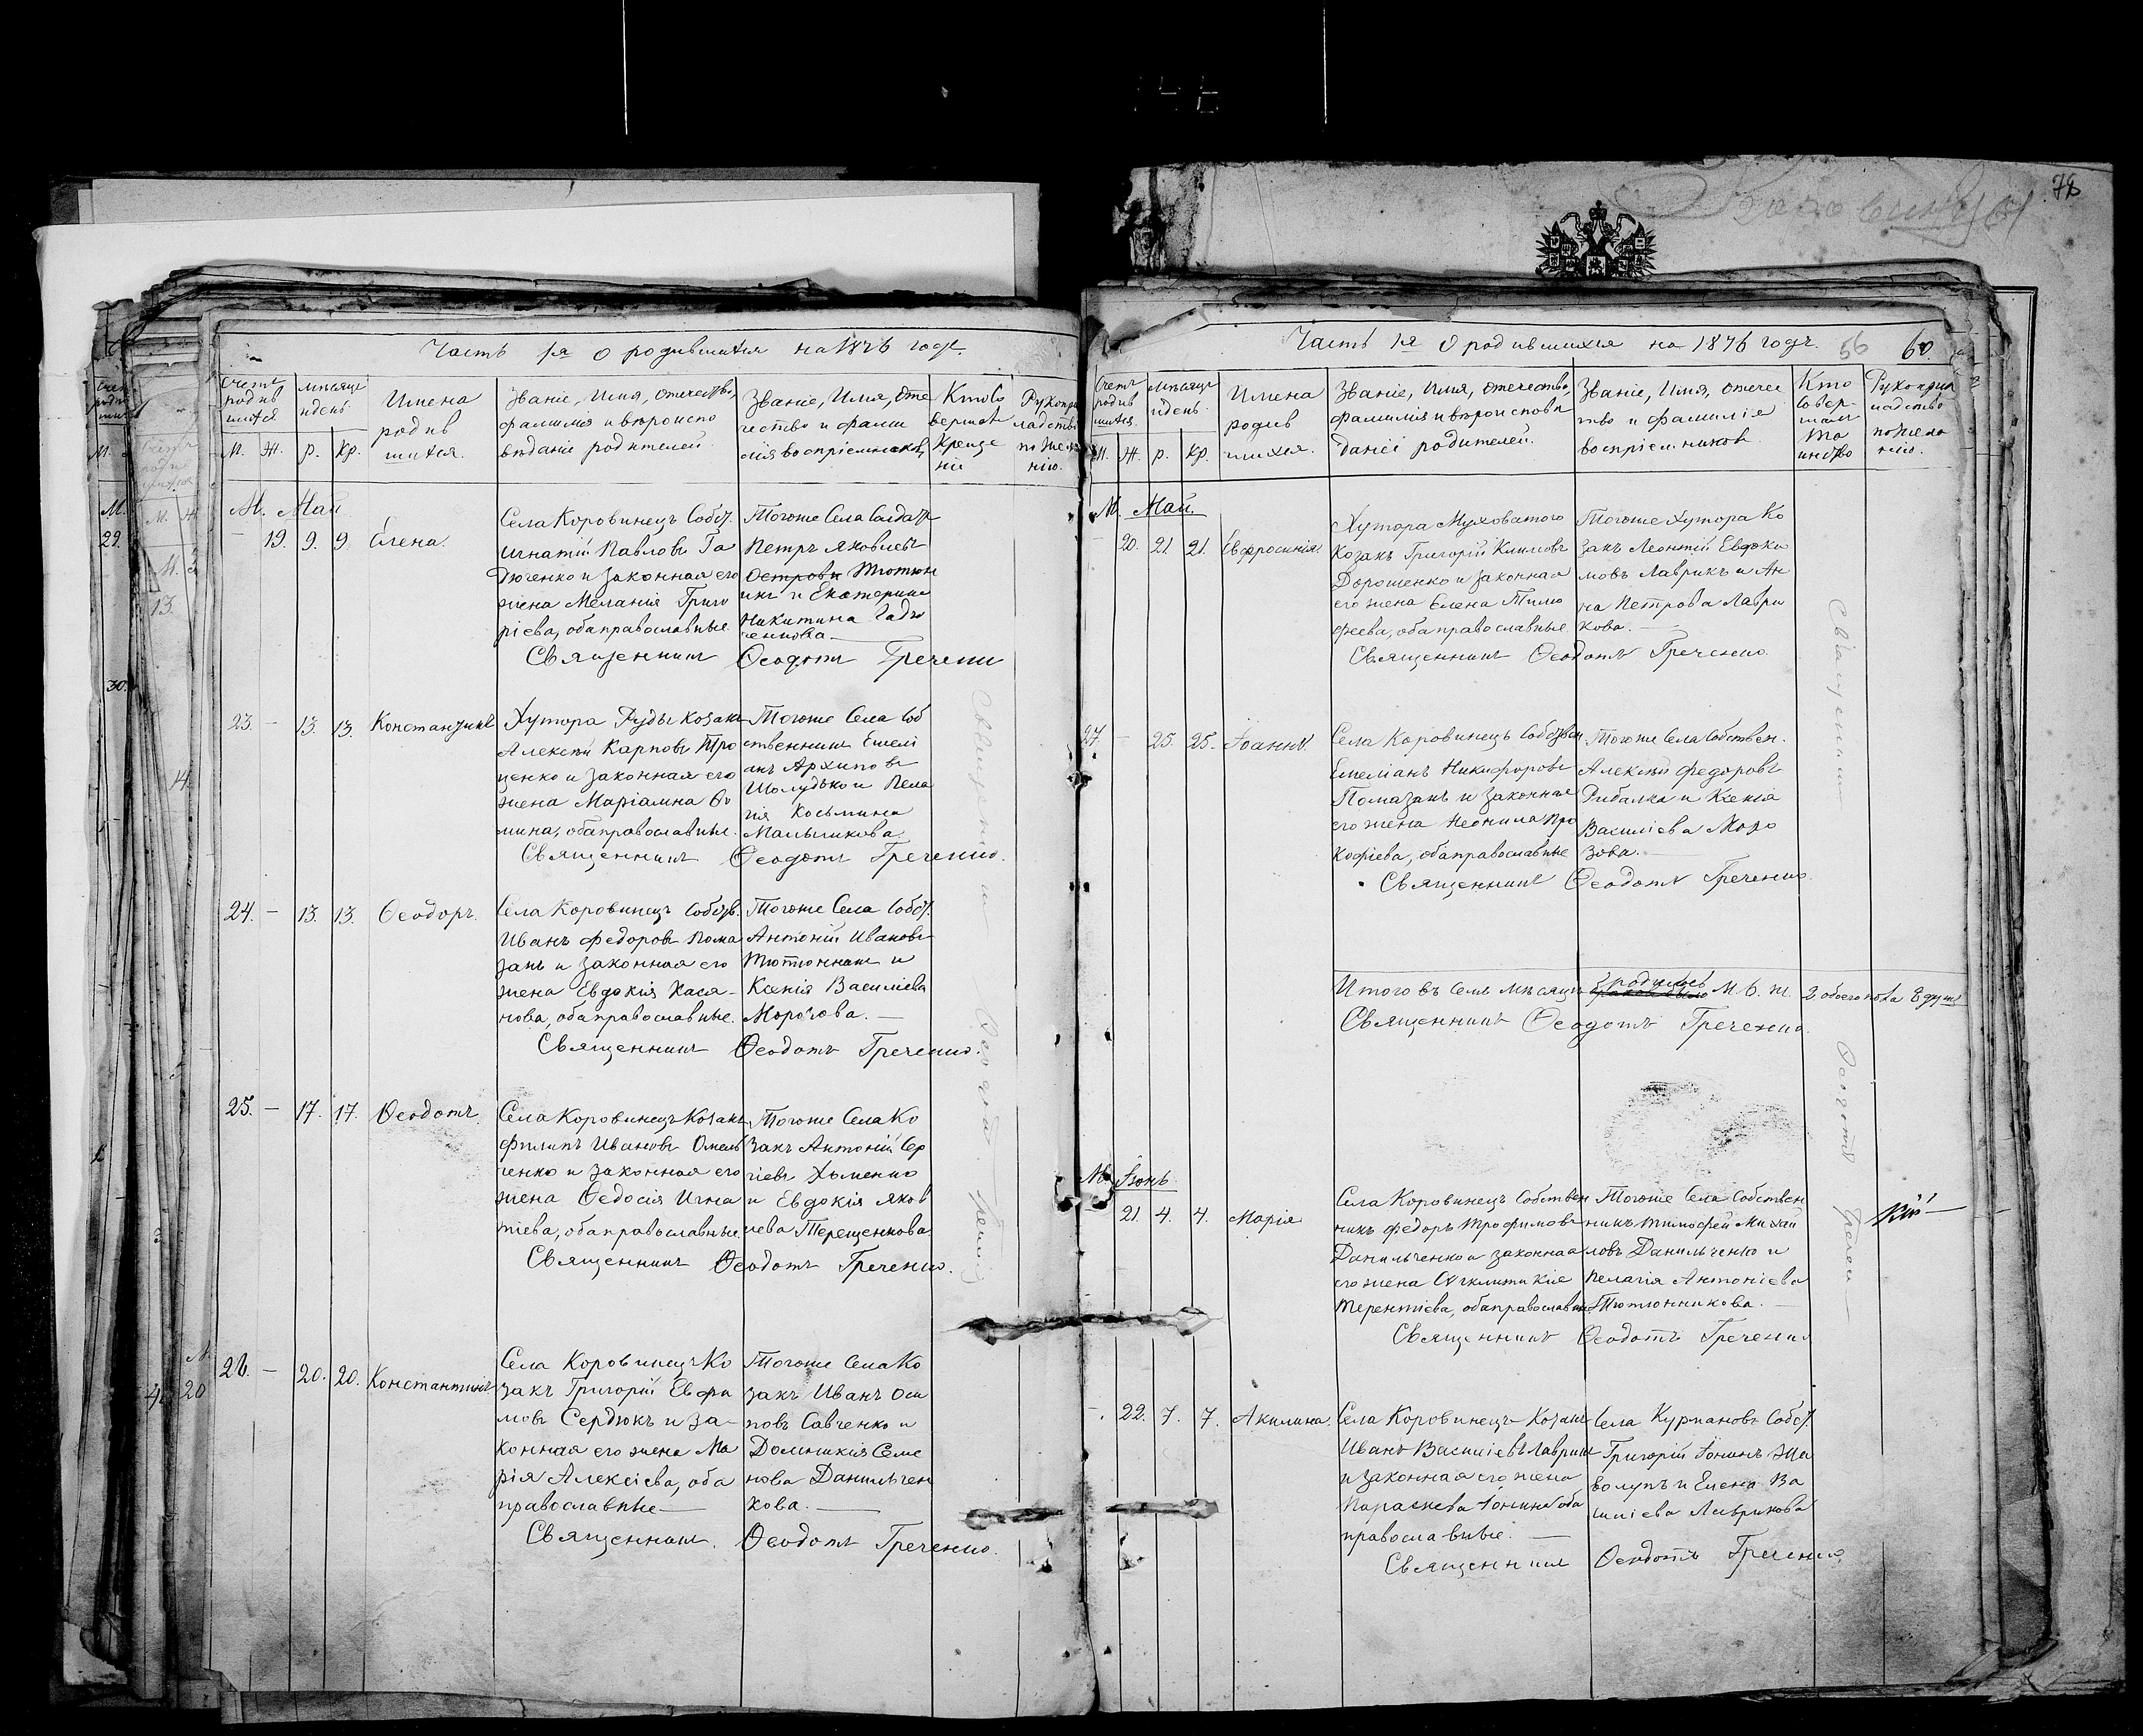 78
Часть 1я О родившихся на 1876 годъ.
Счетъ родив шихся
мѣсяцъ и день
Имена родив шихся.
Званіе, Имя, отечество,
фамилія и вѣроиспо
вѣданіе родителей.
Званіе, Имя, оте
чество и фами
лія воспріемниковъ,
Кто со
вершалъ
Креще
ніе
Рукопри
кладство
по жела
нію.
М. Ж. р. кр.
М. Май
– 19. 9. 9. Елена.
Села Коровинецъ Собст.
Игнатій Павловъ Га
дюченко и законная его
жена Меланія Григо
ріева, оба православные
Тогоже Села Солдатъ
Петръ Яковлевъ
Тютюн
икъ и Екатерина
Никитина Гадю
ченкова —
Священникъ Ѳеодотъ Греченко
23. – 13. 13. Константинъ
Хутора Руды козакъ
Алексѣй Карповъ Тро
ценко и законная его
жена Маріамна Ѳо
мина, оба православные.
Тогоже Села Соб
ственникъ Емелі
анъ Архиповъ
Шолудько и Пела
гія Косьмина
Малышкова.
Священникъ Ѳеодотъ Греченко.
24. – 13. 13. Ѳеодоръ.
Села Коровинецъ Собств.
Иванъ Федоровъ Пома
занъ и законная его
жена Евдокія Кася-
нова, оба православные.
Тогоже Села Собст.
Антоній Ивановъ
Тютюнникъ и
Ксенія Василіева
Морозова. —
Священникъ Ѳеодотъ Греченко.
25. – 17. 17. Ѳеодотъ.
Села Коровинецъ Козакъ
Филипъ Ивановъ Омель
ченко и законная его
жена Ѳедосія Игна
тіева, оба православные.
Тогоже Села Ко
закъ Антоній Сер
гіевъ Хименко
и Евдокія Яков
лева Терещенкова.
Священникъ Ѳеодотъ Греченко.
26. – 20. 20. Константинъ
Села Коровинецъ Ко
закъ Григорій Евфи
мовъ Сердюкъ и за-
конная его жена Ма
рія Алексіева, оба
православные —
Тогоже Села Ко
закъ Иванъ Оси
повъ Савченко и
Домникія Семе
нова Данильчен
кова. —
Священникъ. Ѳеодотъ Греченко.
Часть 1я О родившихся на 1876 годъ. 56 60.
Счетъ родив шихся
Мѣсяцъ и день
Имена родив шихся.
Званіе, Имя, отечество,
фамилія и вѣроиспов
даніе родителей.
Званіе, Имя, отечес
тво и фамилія
воспріемниковъ
Кто совер- шалъ Та инство
Рукоприк ладство по жела нію.
М. Ж. р. кр.
М. Май.
20. 21. 21. Евфросинія
Хутора Муховатого
Козакъ Григорій Климовъ
Дорошенко и законная
его жена Елена Тимо
феева, оба православные.
Тогоже Хутора Ко
закъ Леонтій Евдоки
мовъ Лаврикъ и Ан
на Петрова Лаври
кова. —
Священникъ Ѳеодотъ Греченко.
27. – 25. 25. Іоаннъ.
Села Коровинецъ Собствен
Емеліанъ Никифоровъ
Помазанъ и законная
его жена Неонила Про
кофіева, оба православные
Тогоже Села Собствен.
Алексѣй Федоровъ
Рибалка и Ксенія
Василіева Моро
зова. —
Священникъ Ѳеодотъ Греченко.
Итого въ семъ мѣсяцѣ родилось М. 6. ж. 2 обоего пола 8 душъ
Священникъ Ѳеодотъ Греченко.
М. Іюнь
21. 4. 4. Марія
Села Коровинецъ Собствен
никъ Федоръ Трофимовъ
Данильченко и законная
его жена Синклитикія
Терентіева, оба православн.
Тогоже Села Собствен
никъ Тимофей Михай
ловъ Данильченко и
Пелагія Антоніева
Тютюнникова. —
Священникъ Ѳеодотъ Греченко
–. 22. 7. 7. Акилина.
Села Коровинецъ Козакъ
Иванъ Василіевъ Лаврикъ
и законная его жена
Параскева Іонина оба
православные. —
Села Курмановъ Собст.
Григорій Іонинъ
и Елена Ва
силіева Лаврикова
Священникъ Ѳеодотъ Греченко